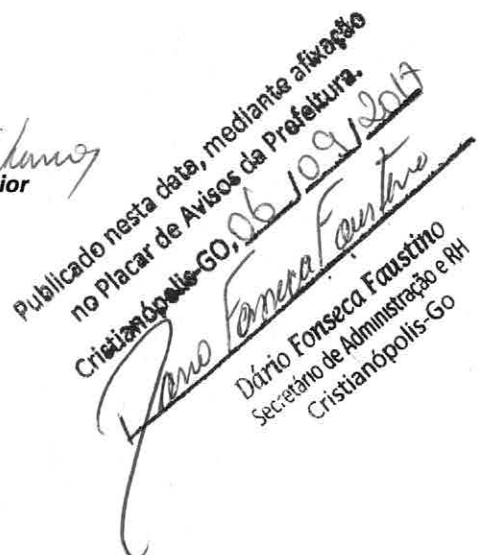 ior
Publicado nesta data, mediante afixação
no Placar de Avisos da Prefeitura.
Cristianópolis-GO, 06/09/2017
Dário Fonseca Faustino
Dário Fonseca Faustino
Secretário de Administração e RH
Cristianópolis-Go